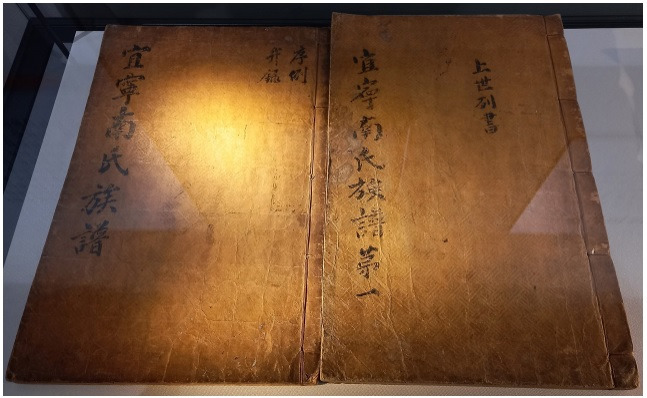 上世列書
宜寧南氏族譜苐一
序例
幷錄
宜寧南氏族譜